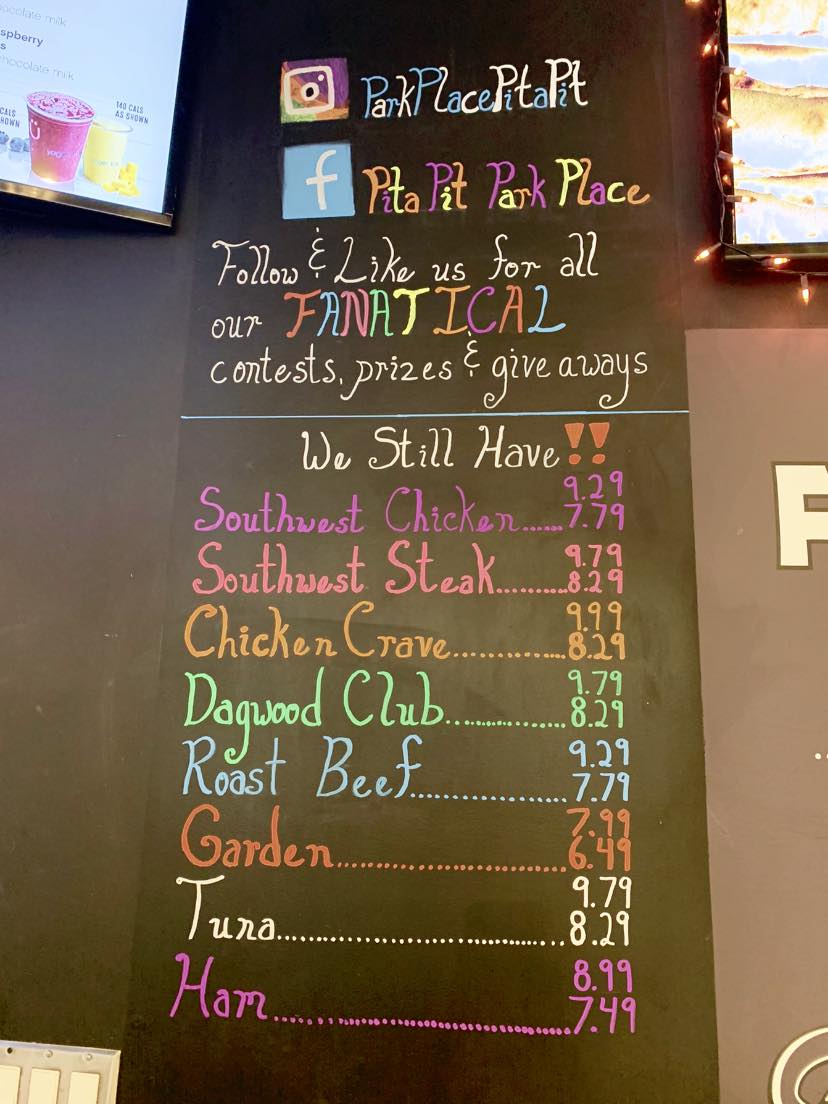 chocolate milk
spberry
s
chocolate milk
140 CALS
AS SHOWN
CALS
HOWN
ParkPlacePitaPit
f Pita Pit Park Place
Follow & Like us for all
our FANATICAL
contests, prizes & give aways
We Still Have!!
9.29
Southwest Chicken......7.79
9.79
Southwest Steak..........8.29
9.99
Chicken Crave..............8.29
9.79
Dagwood Club...............8.29
9.29
Roast Beef...................7.79
7.99
Garden............................6.49
9.79
Tuna...................................8.29
8.99
Ham....................................7.49